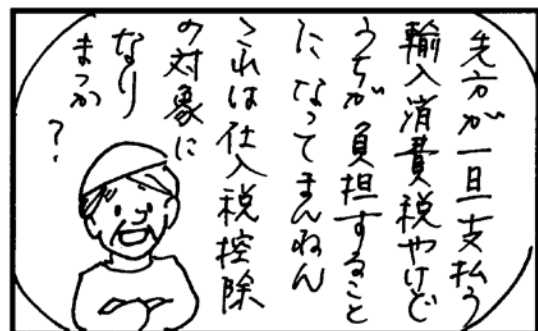 先方が一旦支払う
輸入消費税やけど
うちが負担すること
になってまんねん
これは仕入税控除
の対象に
なり
まっか
?